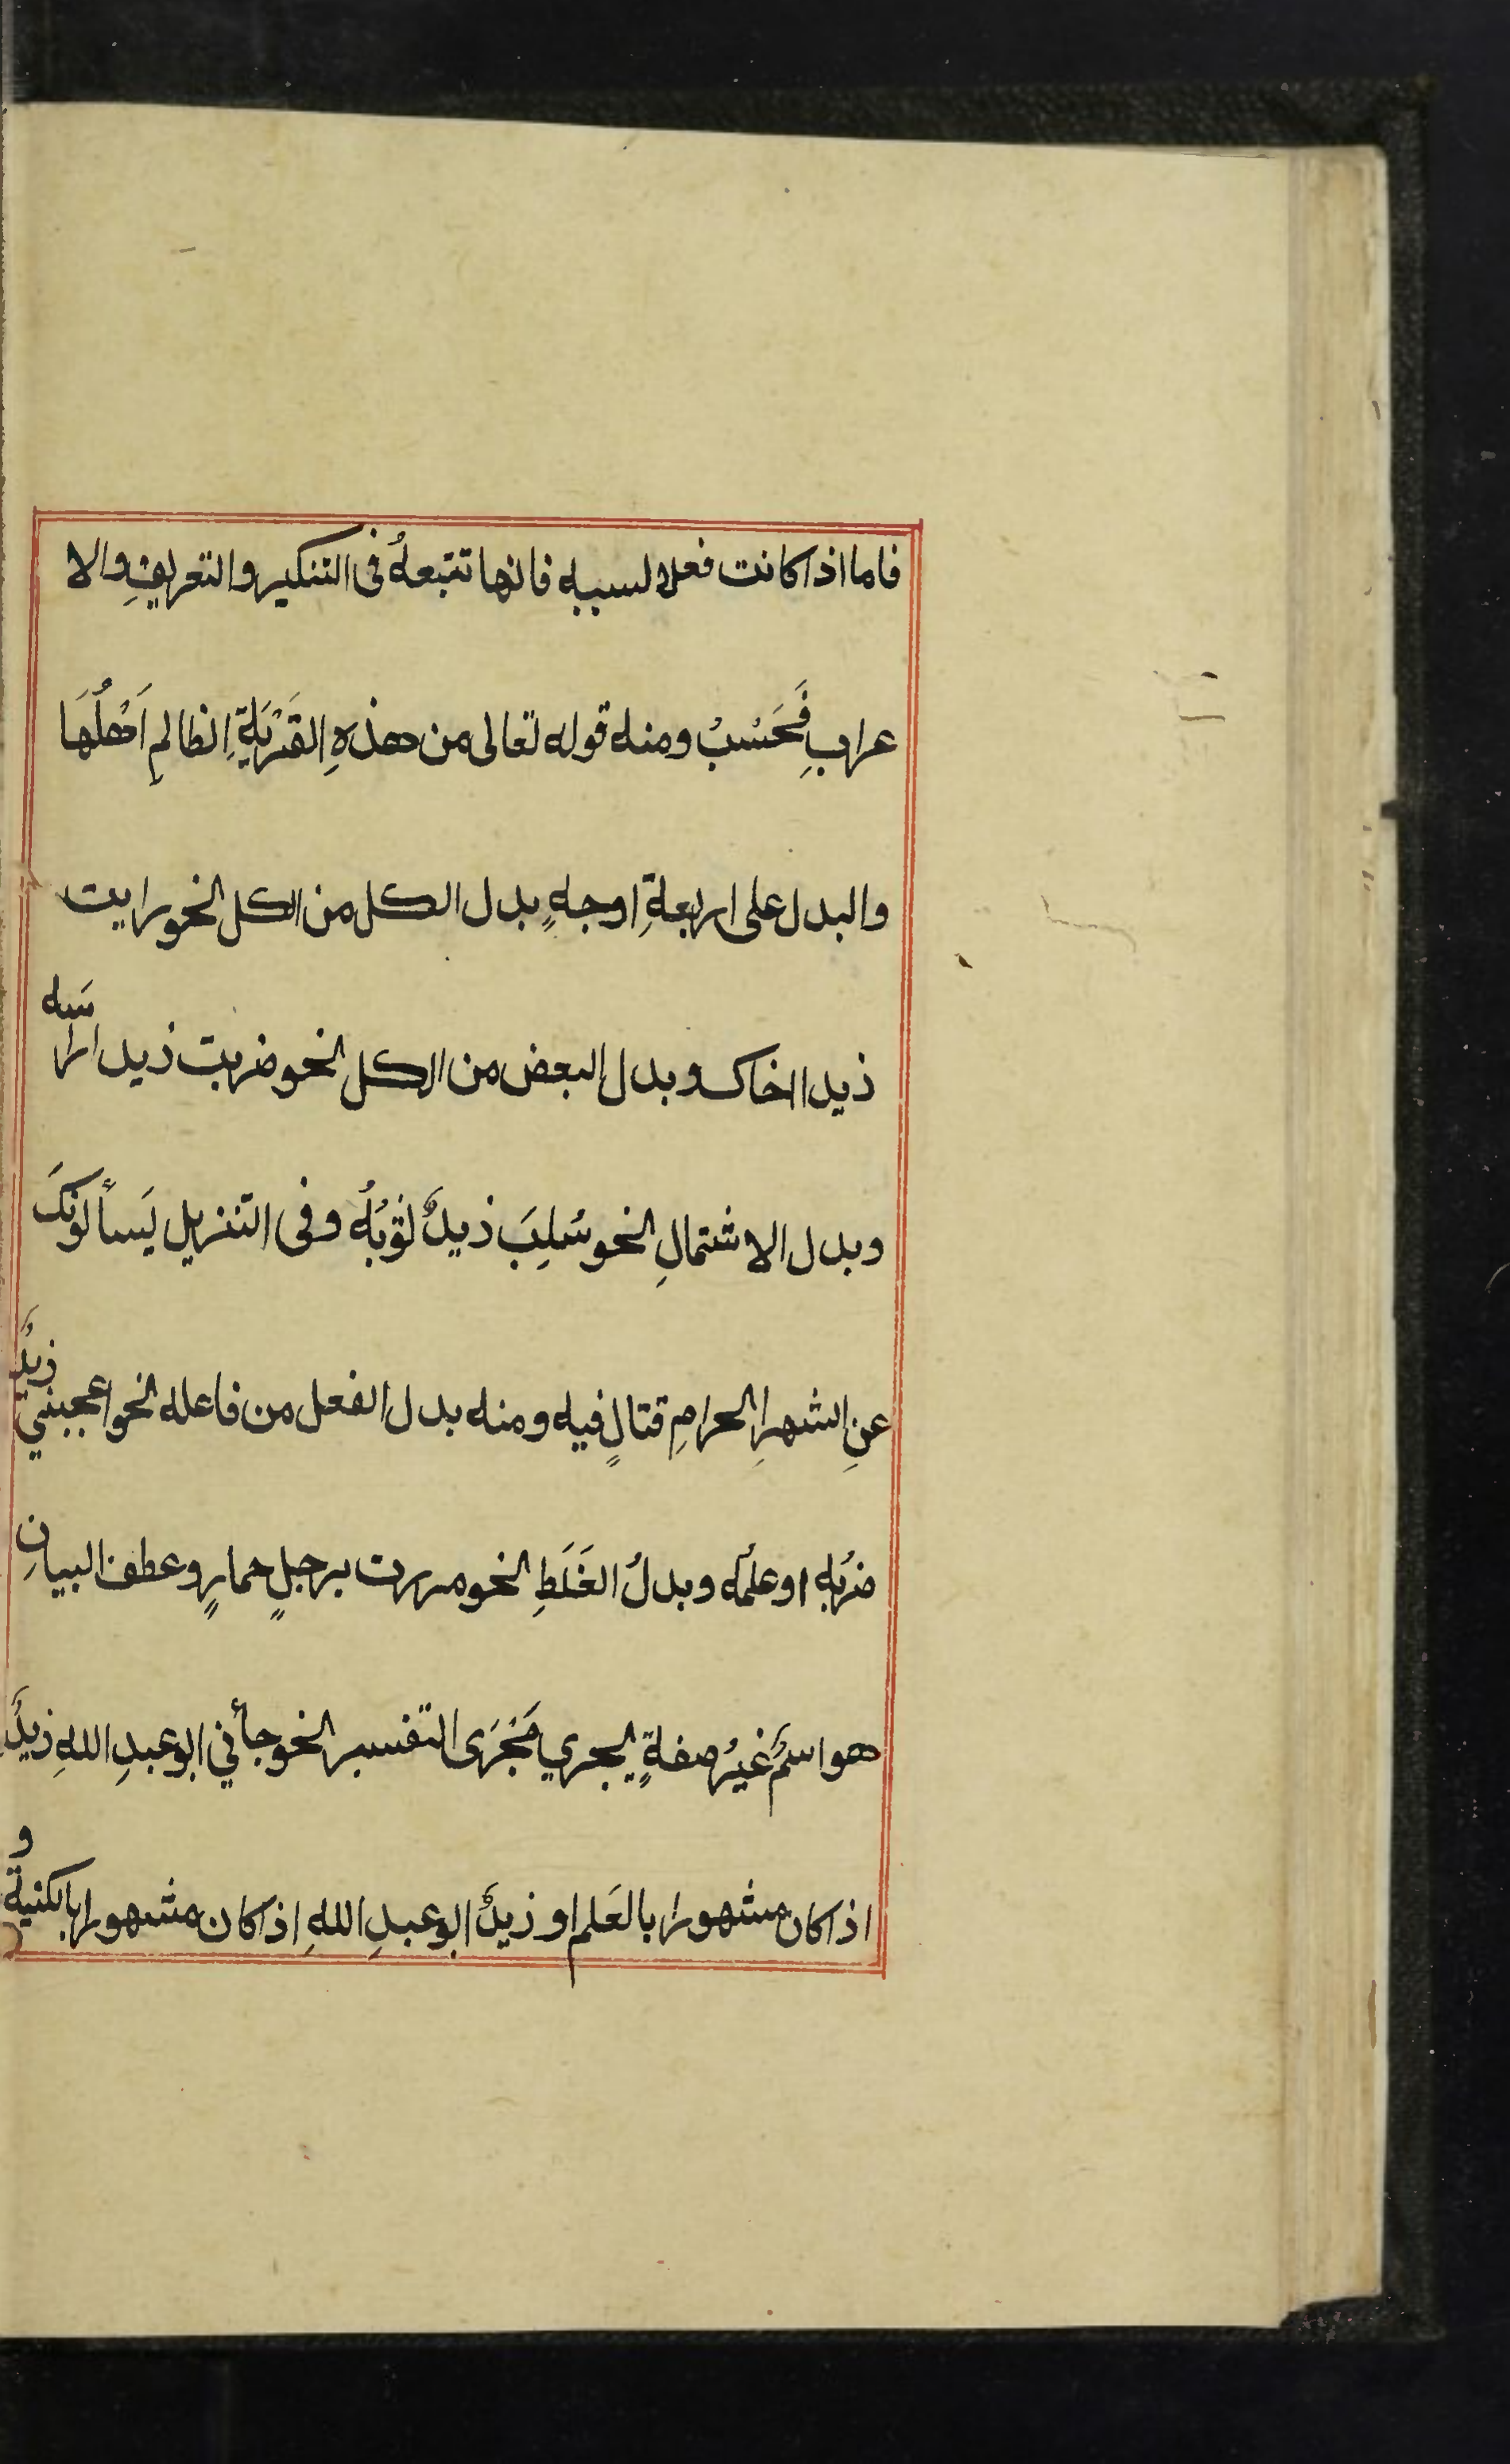 فاما اذا كانت فعلا لسببه فانها تتبعهُ فى التنكير والتعريفِ والا
عرابِ فَحَسْبُ ومنه قوله تعالى من هذهِ القَرْيَةِ الظالمِ اَهْلُهَا
والبدل على اربعةِ اوجهٍ بدل الكل من الكل نحو رايت
ذيدا اخاك وبدل البعض من الكل نحو ضربت ذيدا راسَه
وبدل الاشتمالِ نحو سُلِبَ ذيدٌ ثوْبُهُ وفى التنزيل يَسأَلونَكَ
عنِ الشهرِ الحرامِ قتالٍ فيه ومنه بدل الفعل من فاعله نحو اعجبني ذيدٌ
ضرْبُه او علمُه وبدلُ الغَلَطِ نحو مررت برجلٍ حمارٍ وعطف البيانِ
هو اسمٌ غيرُ صفةٍ يجري مَجْرَى التفسير نحو جأني ابو عبدِ اللهِ ذيدٌ
اذا كان مشهورا بالعَلم او ذيدٌ ابو عبدِ اللهِ اذا كان مشهورا بالكنيةِ و